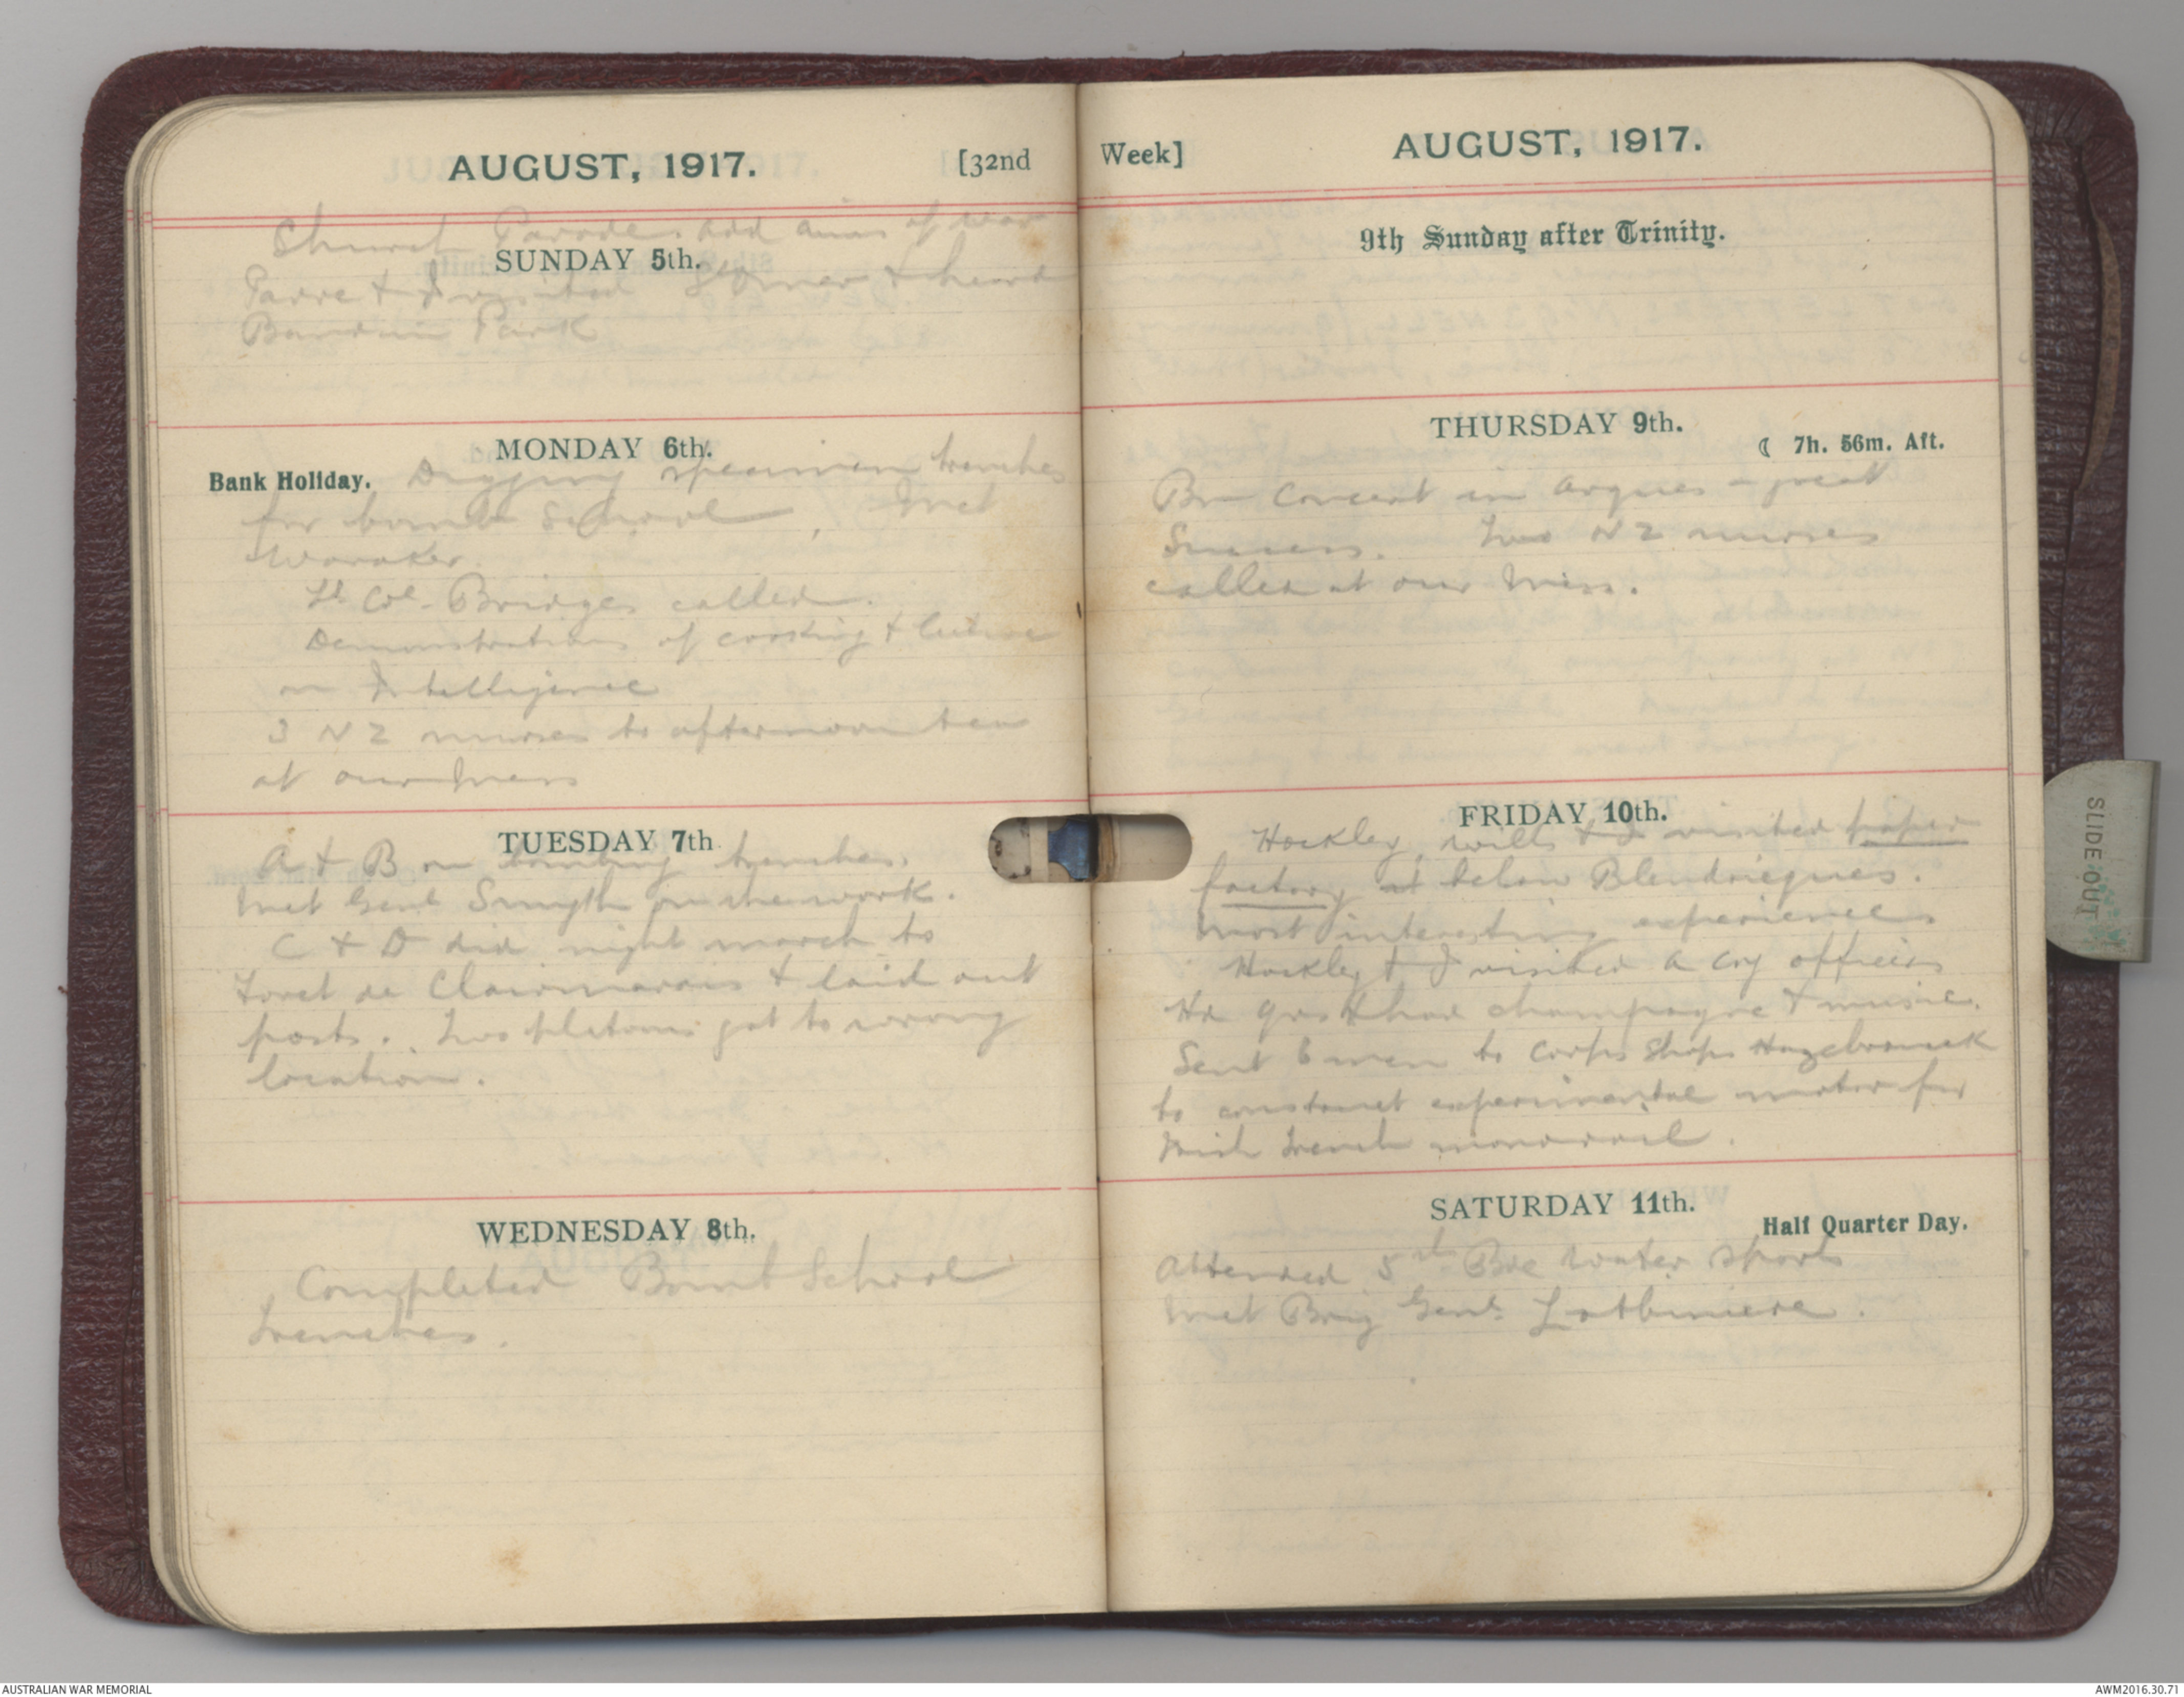 AUGUST, 1917. [32nd
Church Parade add aims of war
SUNDAY 5th.
& I visited St Omer & heard
Park
MONDAY 6th.
Bank Holiday. Digging specimen trenches
for bomb School, Met
Woraker.
Lt Col. Bridges called.
Demonstrations of cooking & lecture
on Intelligence
3 N Z nurses to afternoon tea
at our Mess
TUESDAY 7th
A & B on bombing trenches.
Met Genl Smyth on the work.
C & D did night march to
Foret de Clairmarais & laid out
posts. Two platoons got to wrong
location.
WEDNESDAY 8th.
Completed Bomb School
trenches.
Week] AUGUST, 1917.
9th Sunday after Trinity.
THURSDAY 9th.
☾ 7h. 56m. Aft.
Bn Concert in Arques a great
Success. Two N Z nurses
called at our Mess.
FRIDAY 10th.
Hockley, Wills & I visited paper
factory at below Blendecques.
Most interesting experience
Hockley & I visited A Coy officers
Hd Qrs & had champagne & music.
Sent 6 men to Corps Shops Hazebrouck
to construct experimental motor for
trench monorail.
SATURDAY 11th.
Half Quarter Day.
Attended 5th Bde water sports
Met Brig Genl. Lotbiniere.
SLIDE OUT
AUSTRALIAN WAR MEMORIAL
AWM2016.30.71